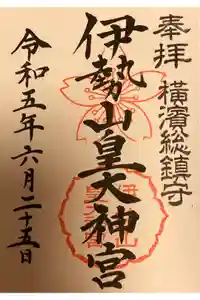 奉拝 横濱総鎮守
伊勢山皇大神宮
令和五年六月二十五日